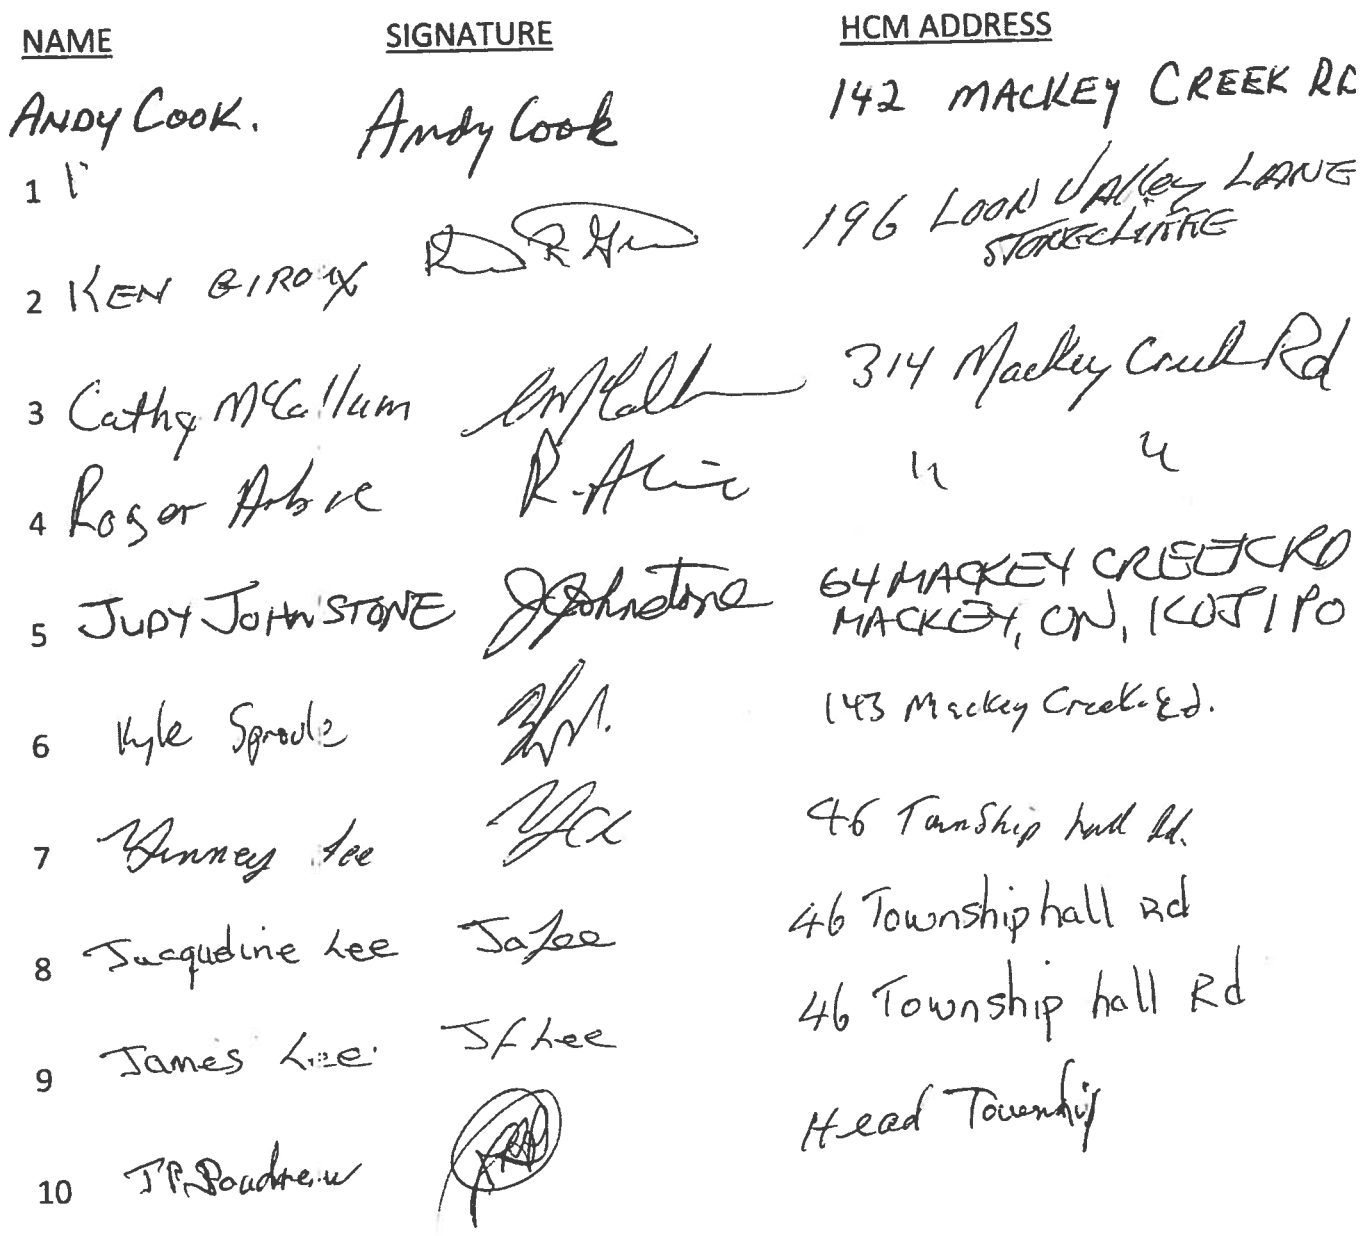 NAME SIGNATURE HCM ADDRESS
ANDY COOK. Andy Cook 142 MACKEY CREEK RD
1
196 LOON VAlley LANE
STONECLIFFE
2 KEN GIROUX
3 Cathy McCallum CMcCallum 314 Mackey Creek Rd
4 Roger " "
5 JUDY JOHNSTONE J Johnstone 64 MACKEY CREEK RD
MACKEY, ON, K0J 1P0
6 Kyle Sproule 143 Mackey Creek Rd.
7 Lee 46 Township hall Rd.
8 Jacqueline Lee Ja Lee 46 Township hall Rd
9 James Lee J F Lee 46 Township hall Rd
10 JP. Head Township